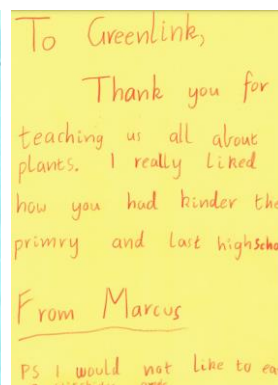 To Greenlink,
Thank you for
teaching us all about
plants. I really liked
how you had kinder the
primry and last highscho
From Marcus
PS I would not like to ea